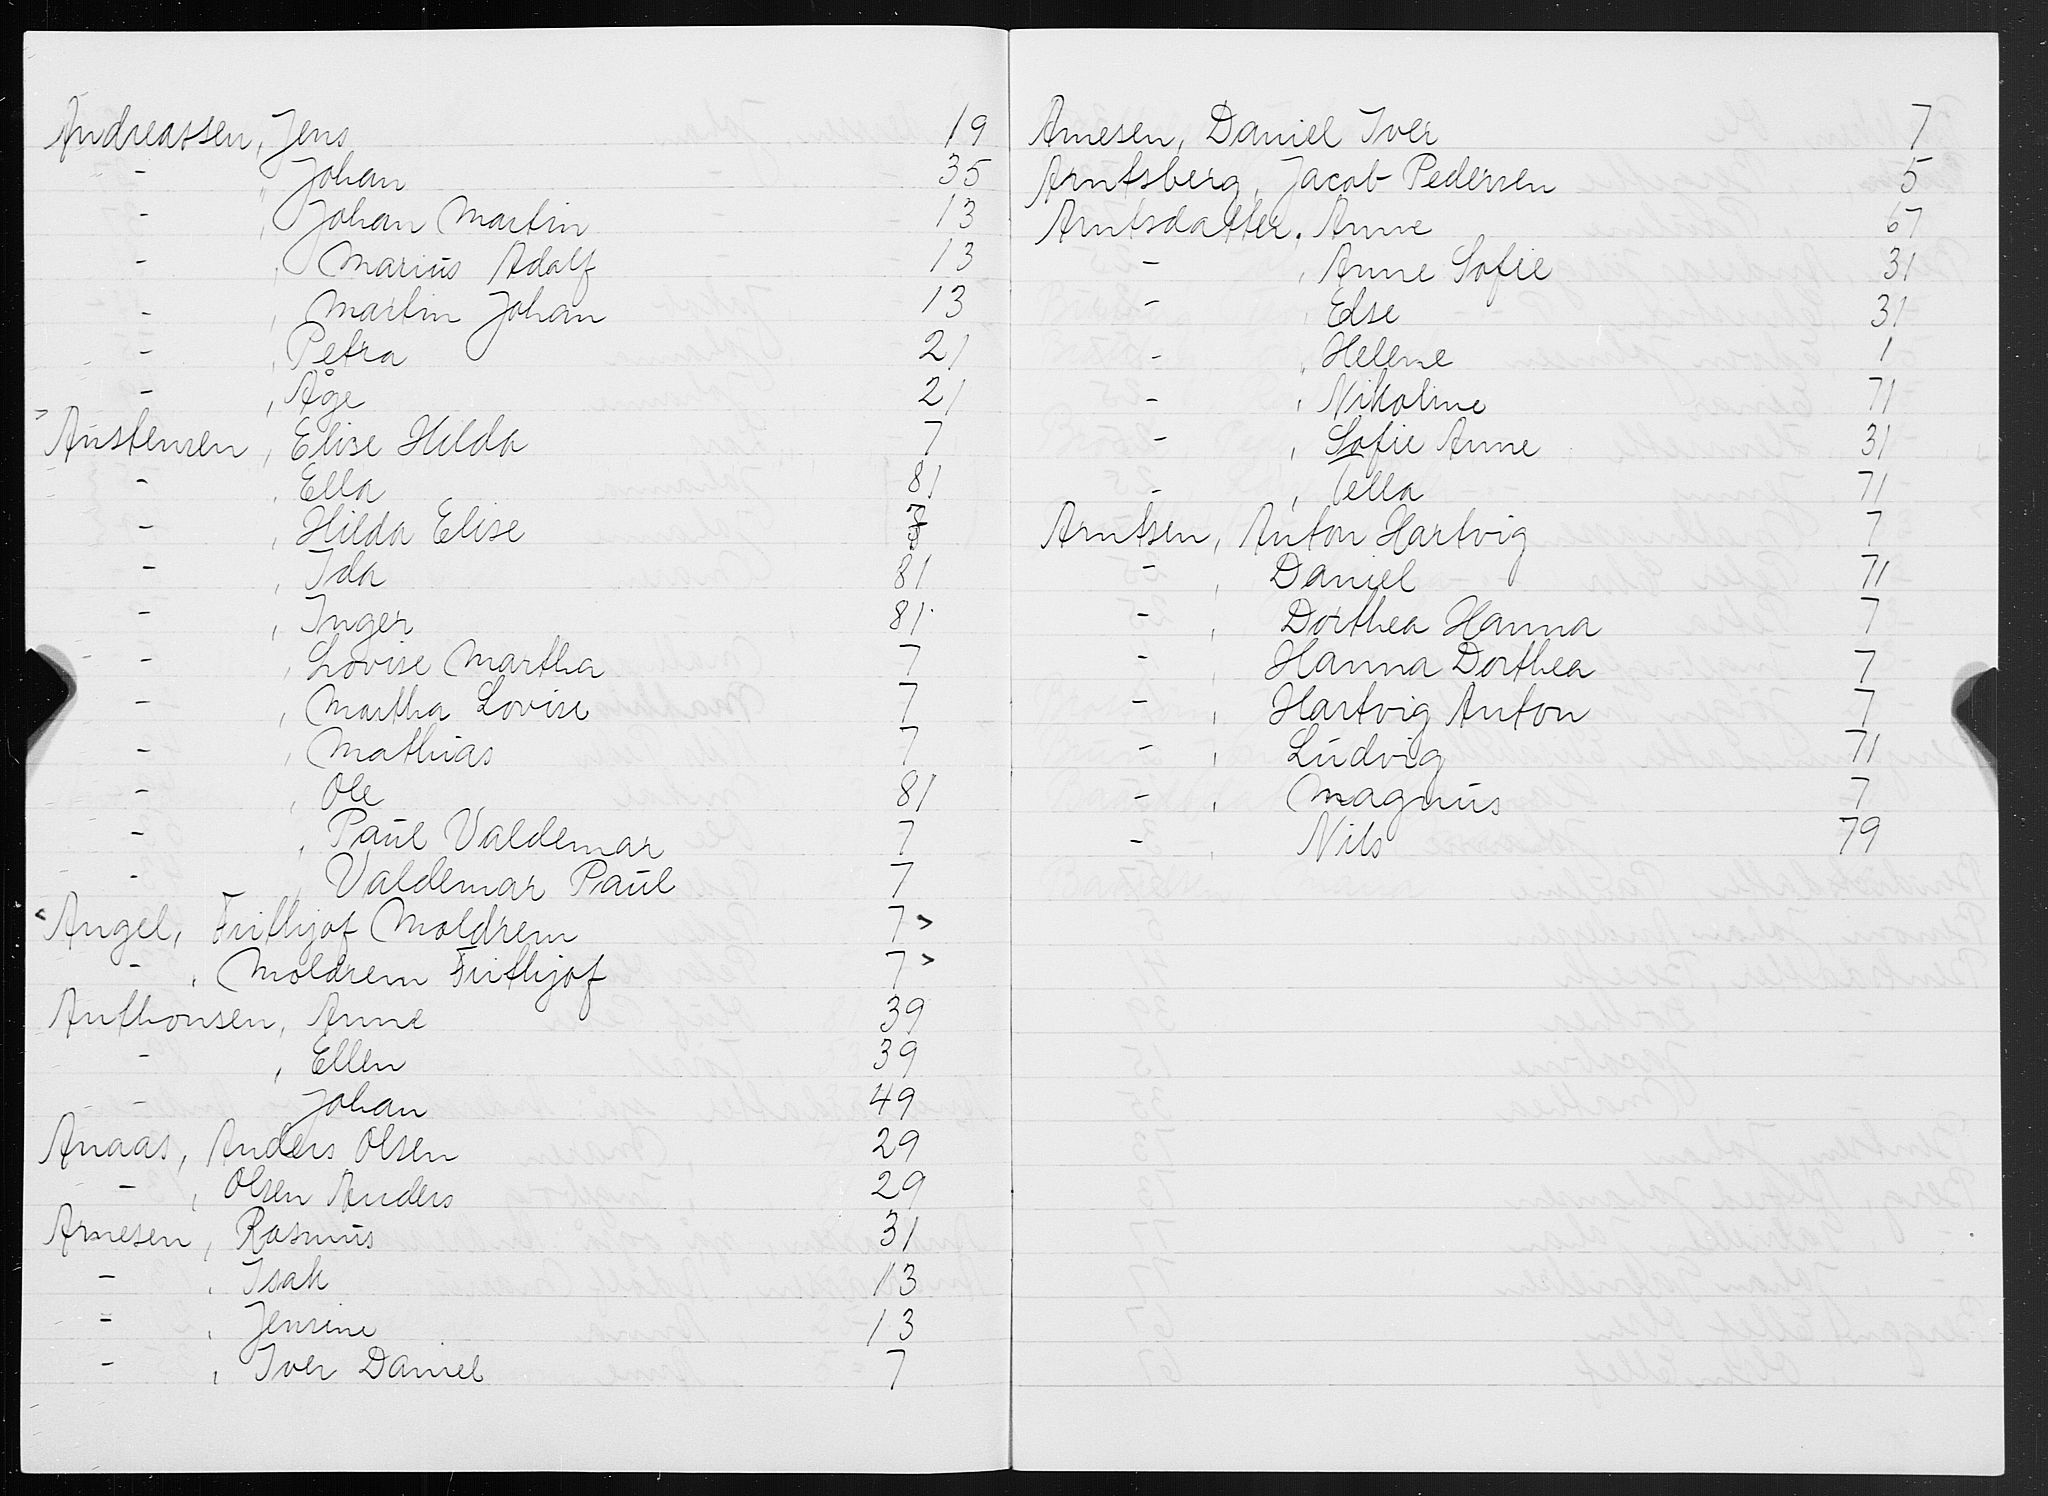 Andreassen, Jens 19
- , Johan 35
- , Johan Martin 13
- , Marius Adolf 13
- , Martin Johan 13
- , Petra 21
- , Åge 21
Austensen, Elise Hilda 7
- , Ella 81
- , Hilda Elise 7
- , Ida 81
- , Inger 81
- , Lovise Martha 7
- , Martha Lovise 7
- , Mathias 7
- , Ole 81
- , Paul Valdemar 7
- , Valdemar Paul 7
< Angel, Frithjof Moldrem 7 >
- , Moldrem Frithjof 7 >
Anthonsen, Anne 39
- , Ellen 39
- Johan 49
Anaas, Anders Olsen 29
- , Olsen Anders 29
Arnesen, Rasmus 31
- , Isak 13
- , Jensine 13
- , Iver Daniel 7
Arnesen, Daniel Iver 7
Arntsberg, Jacob Pedersen 5
Arntsdatter, Anne 67
- , Anne Sofie 31
- , Else 31
- , Helene 1
- , Nikoline 71
- , Sofie Anne 31
- , Tella 71
Arntsen, Anton Hartvig 7
- , Daniel 71
- , Dorthea Hanna 7
- , Hanna Dorthea 7
- , Hartvig Anton 7
- , Ludvig 71
- , Magnus 7
- , Nils 79